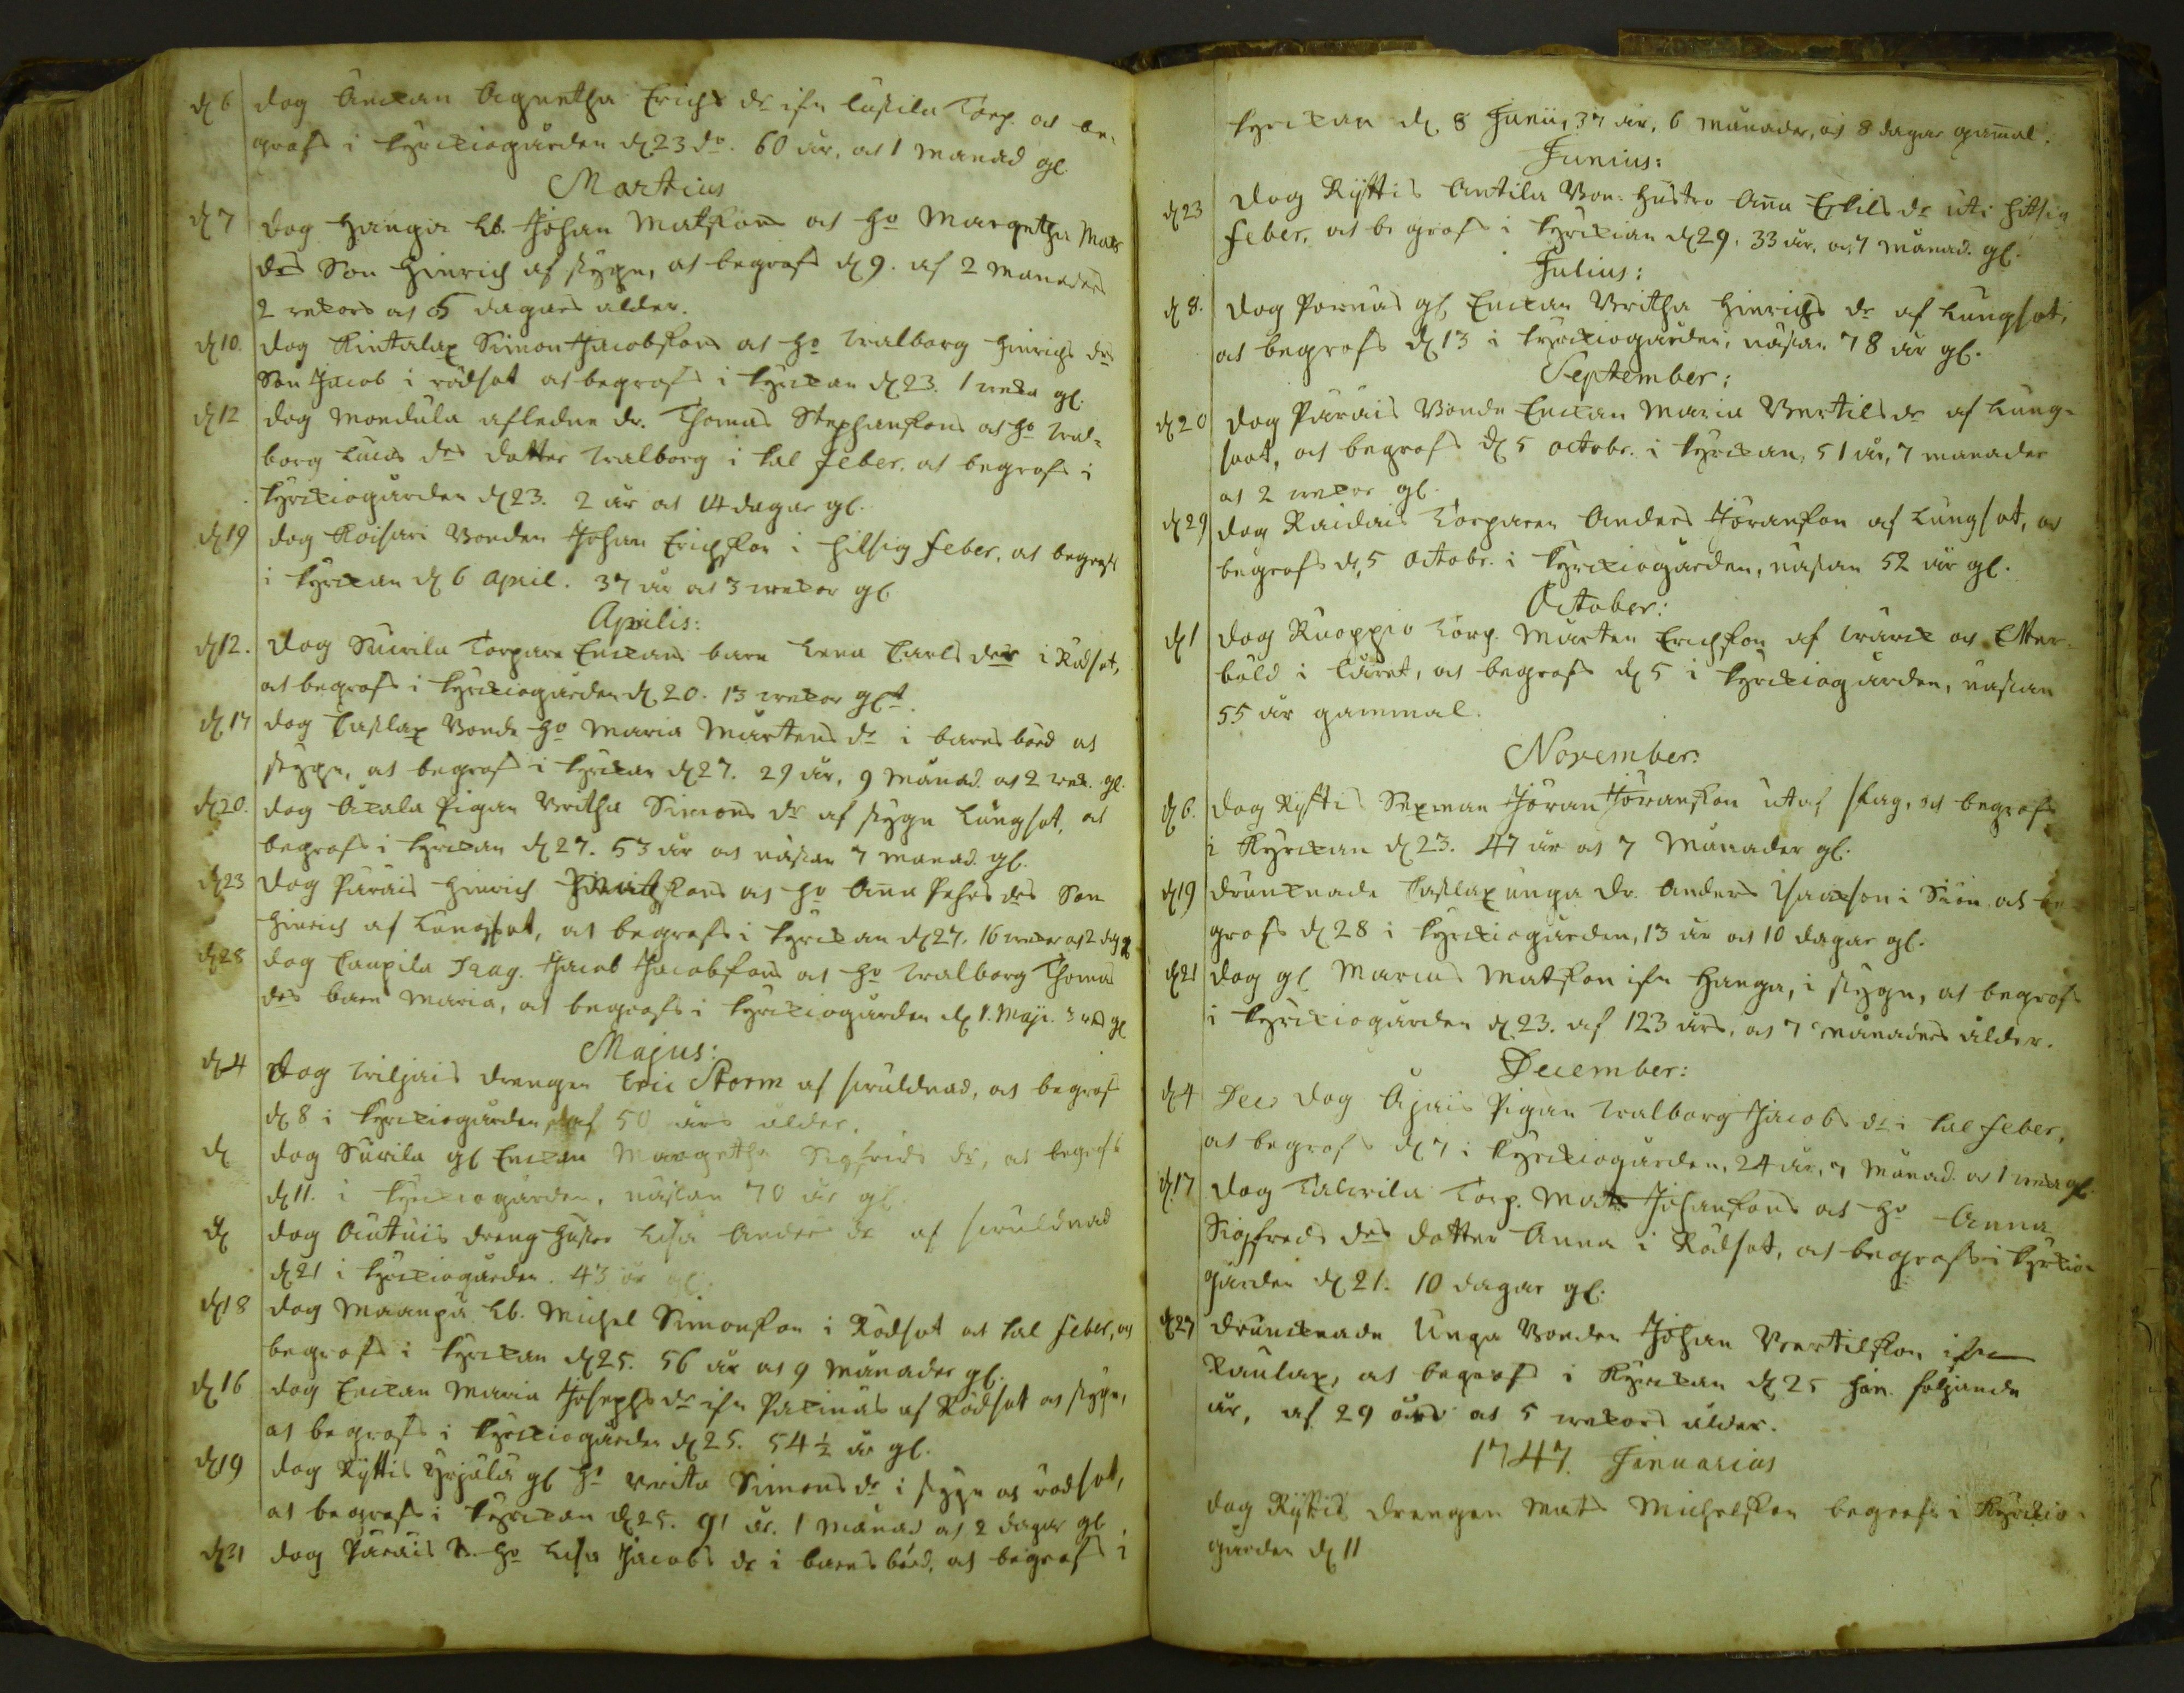 d 6 dog Enckan Agnetha Erichs dr ifrn Cassila Torp. ok be-
grofs i Kyrckiogården d 23 do. 60 år, ok 1 Manad gl
Martius
d 7 dog Hanga Lb. Johan Matssons ok ho Margetha Mats
drs Son Hinrich af styng, ok begrofs d 9. af 2 Manaders
2 wekors ok 5 dagars alder.
d 10. dog Kintalax Simon Jacobssons ok ho Walborg Hinrichs drs
Son Jacob i rödsot ok begrofs i Kyrckan d 23. 1 weka gl.
d 12 dog Mondula afledne dr. Thomas Stephanssons ok ho Wal-
borg Lucas drs dotter Walborg i kal feber. ok begrofs i
Kyrckiogården d 23. 2 år ok 14 dagar gl.
d 19 dog Koisari Bonden Johan Erichsson i hitsig feber, ok begrofs
i Kyrckan d 6 April. 37 år ok 3 wekor gl.
Aprilis:
d 12. dog Suurila Torpare Enckans barn Lena Carls dr i Rödsot,
ok begrofs i Kyrckiogården d 20. 13 wekor glt.
d 17 dog Caslax Bonde ho Maria Mårtens dr i barns börd ok
stygn, ok begrofs i Kyrckan d 27. 29 år, 9 Månad. ok 2 wek. gl.
d 20. dog Ackala Pigan Britha Simons dr af stygn Lungsot, ok
begrofs i Kyrckan d 27. 53 år ok nästan 7 manad. gl.
d 23 dog Parais Hinrich Hinrichssons ok ho Anna Pehrs drs Son
Hinrich af Lungsot, ok begrofs i Kyrckan d 27. 16 wekor ok 2 dag
d 28 dog Caupila Jacob Jacobsons ok ho Walborg Thomas
drs barn Maria, ok begrofs i Kyrckiogården d 1. Maji. 3 gl
Majus:
d 4 dog Wiljais drengen Eric Storm af swuldnad, ok begrofs
d 8 i Kyrckiogården, af 50 års alder.
d dog Suurila gl Enckan Margetha Sigfrids dr, ok begrofs
d 11. i Kyrckiogården, nästan 70 år gl.
d dog dreng hustro Lisa Anders dr af swuldnad
d 21 i Kyrckiogården. 43 år gl.
d 18 dog Maanpä Lb. Michel Simonsson i Rödsot ok kal feber, ok
begrofs i Kyrckan d 25. 56 år ok 9 Månader gl.
d 16 dog Enckan Maria Josephs dr ifrn Pakinas af Rödsot ok stygn,
ok begrofs i Kyrckiogården d 25. 54 1/2 år gl.
d 19 dog Kyttis Yrjälä gl ho Brita Simons dr i stygn ok rödsot,
ok begrofs i Kyrckan d 25. 91 år. 1 Månad ok 2 dagar gl
d 21 dog Parais B. ho Lisa Jacobs dr i barns börd, ok begrofs i
Kyrckan d. 8 Junii, 37 år, 6 månader, ok 8 dagar gamal.
Junius:
d 23 dog Kyttis Antila Bon: hustro Anna Eskils dr uti hitsig
feber, ok begrofs i Kyrckan d 29. 33 år, ok 7 månad. gl.
Julius:
d 8. dog Pornas gl Enckan Britha Hinrichs dr af Lungsot,
ok begrofs d 13 i Kyrckiogården, nästan 78 år gl.
September:
d 20 dog Parais Bonde Enckan Maria Bertils dr af Lung-
soot, ok begrofs d 5 octobr. i Kyrckan, 51 år, 7 manader
ok 2 wekor gl.
d 29 dog Raidais Torparen Anders Jöransson af Lungsot, ok
begrofs d. 5 Octobr. i Kyrckiogården, nästan 52 år gl.
October:
d 1 dog Kuoppio Torp. Mårten Erichsson af wärck ok Etter-
böld i Låret, ok begrofs d 5 i Kyrckiogården, nästan
55 år gammal.
November:
d 6. dog Kyttis Sexman Jöran Jöransson utaf slag, ok begrofs
i Kyrckan d 23. 47 år ok 7 Månader gl.
d 19 drunknade Caslax unga dr. Anders Isackson i Siön ok be-
grofs d 28 i Kyrckiogården, 13 år ok 10 dagar gl.
d 21 dog gl Marcus Matsson ifrn Hanga, i stygn, ok begrofs
i Kyrckiogården d 23. af 123 års, ok 7 månaders ålder.
December:
d 4 Dec dog Ajais Pigan Walborg Jacobs dr i kal feber,
ok begrofs d 7 i Kyrckiogården, 24 år, 7 Månad. ok 1 weka gl.
d 17 dog Talwila Torp. Mats Johanssons ok ho Anna
Sigfreds drs dotter Anna i Rödsot, ok begrofs i Kyrkio-
gården d 21. 10 dagar gl.
d 27 drunknade Unga Bonden Johan Bertilsson ifrn
Kaulax, ok begrofs i Kyrckan d 25 Jan. följande
år, af 29 års ok 5 wekors ålder.
1747. Januarius
dog Kyttis drengen Mats Michelsson begrofs i Kyrckio-
gården d 11